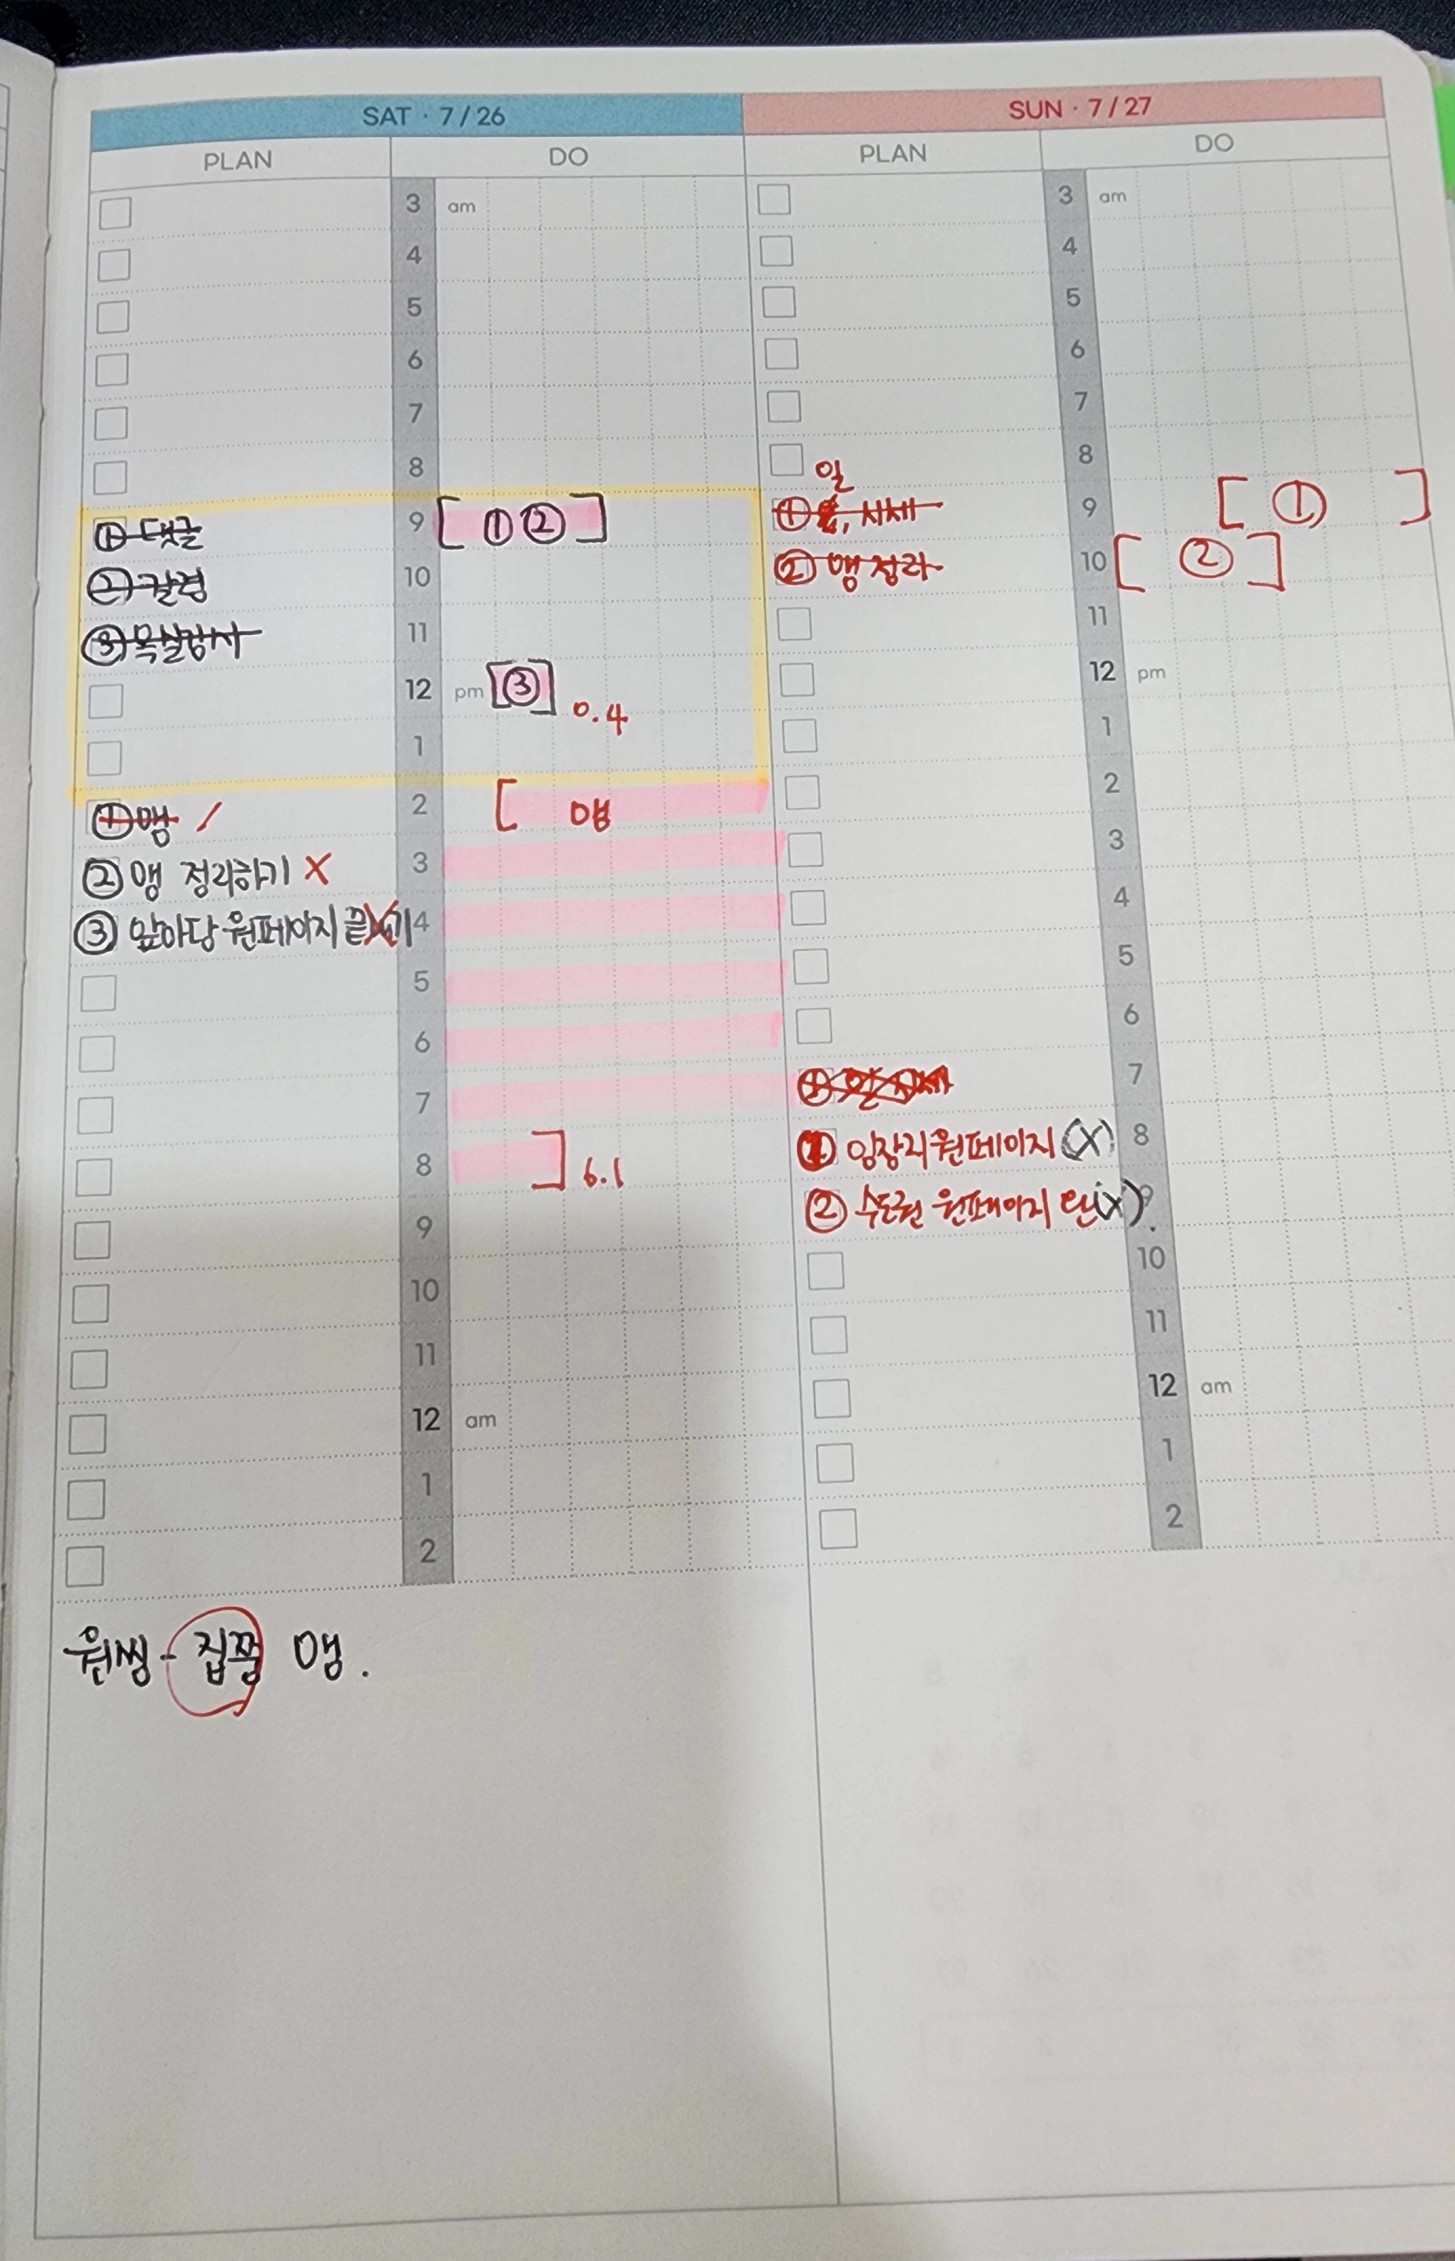 SAT · 7/26
SUN · 7/27
PLAN
DO
PLAN
DO
3 am
4
5
6
7
8
① 댓글
9
[ ① ② ]
② 칼럼
10
③ 목실감사
11
12 pm [③] 0.4
1
① 앰 /
2
[ 앰
② 앰 정리하기 X
3
③ 앞마당 원페이지 끝내기
4
5
6
7
8
] 6.1
9
10
11
12 am
1
2
3 am
4
5
6
7
8
일
①
시세
9
[ ① ]
② 앰 정리
10
[ ② ]
11
12 pm
1
2
3
4
5
6
① 일 시세
7
① 임장지 원페이지 (X)
8
② 수도권 원페이지 (X)
9
10
11
12 am
1
2
원씽 - 집중 앰.